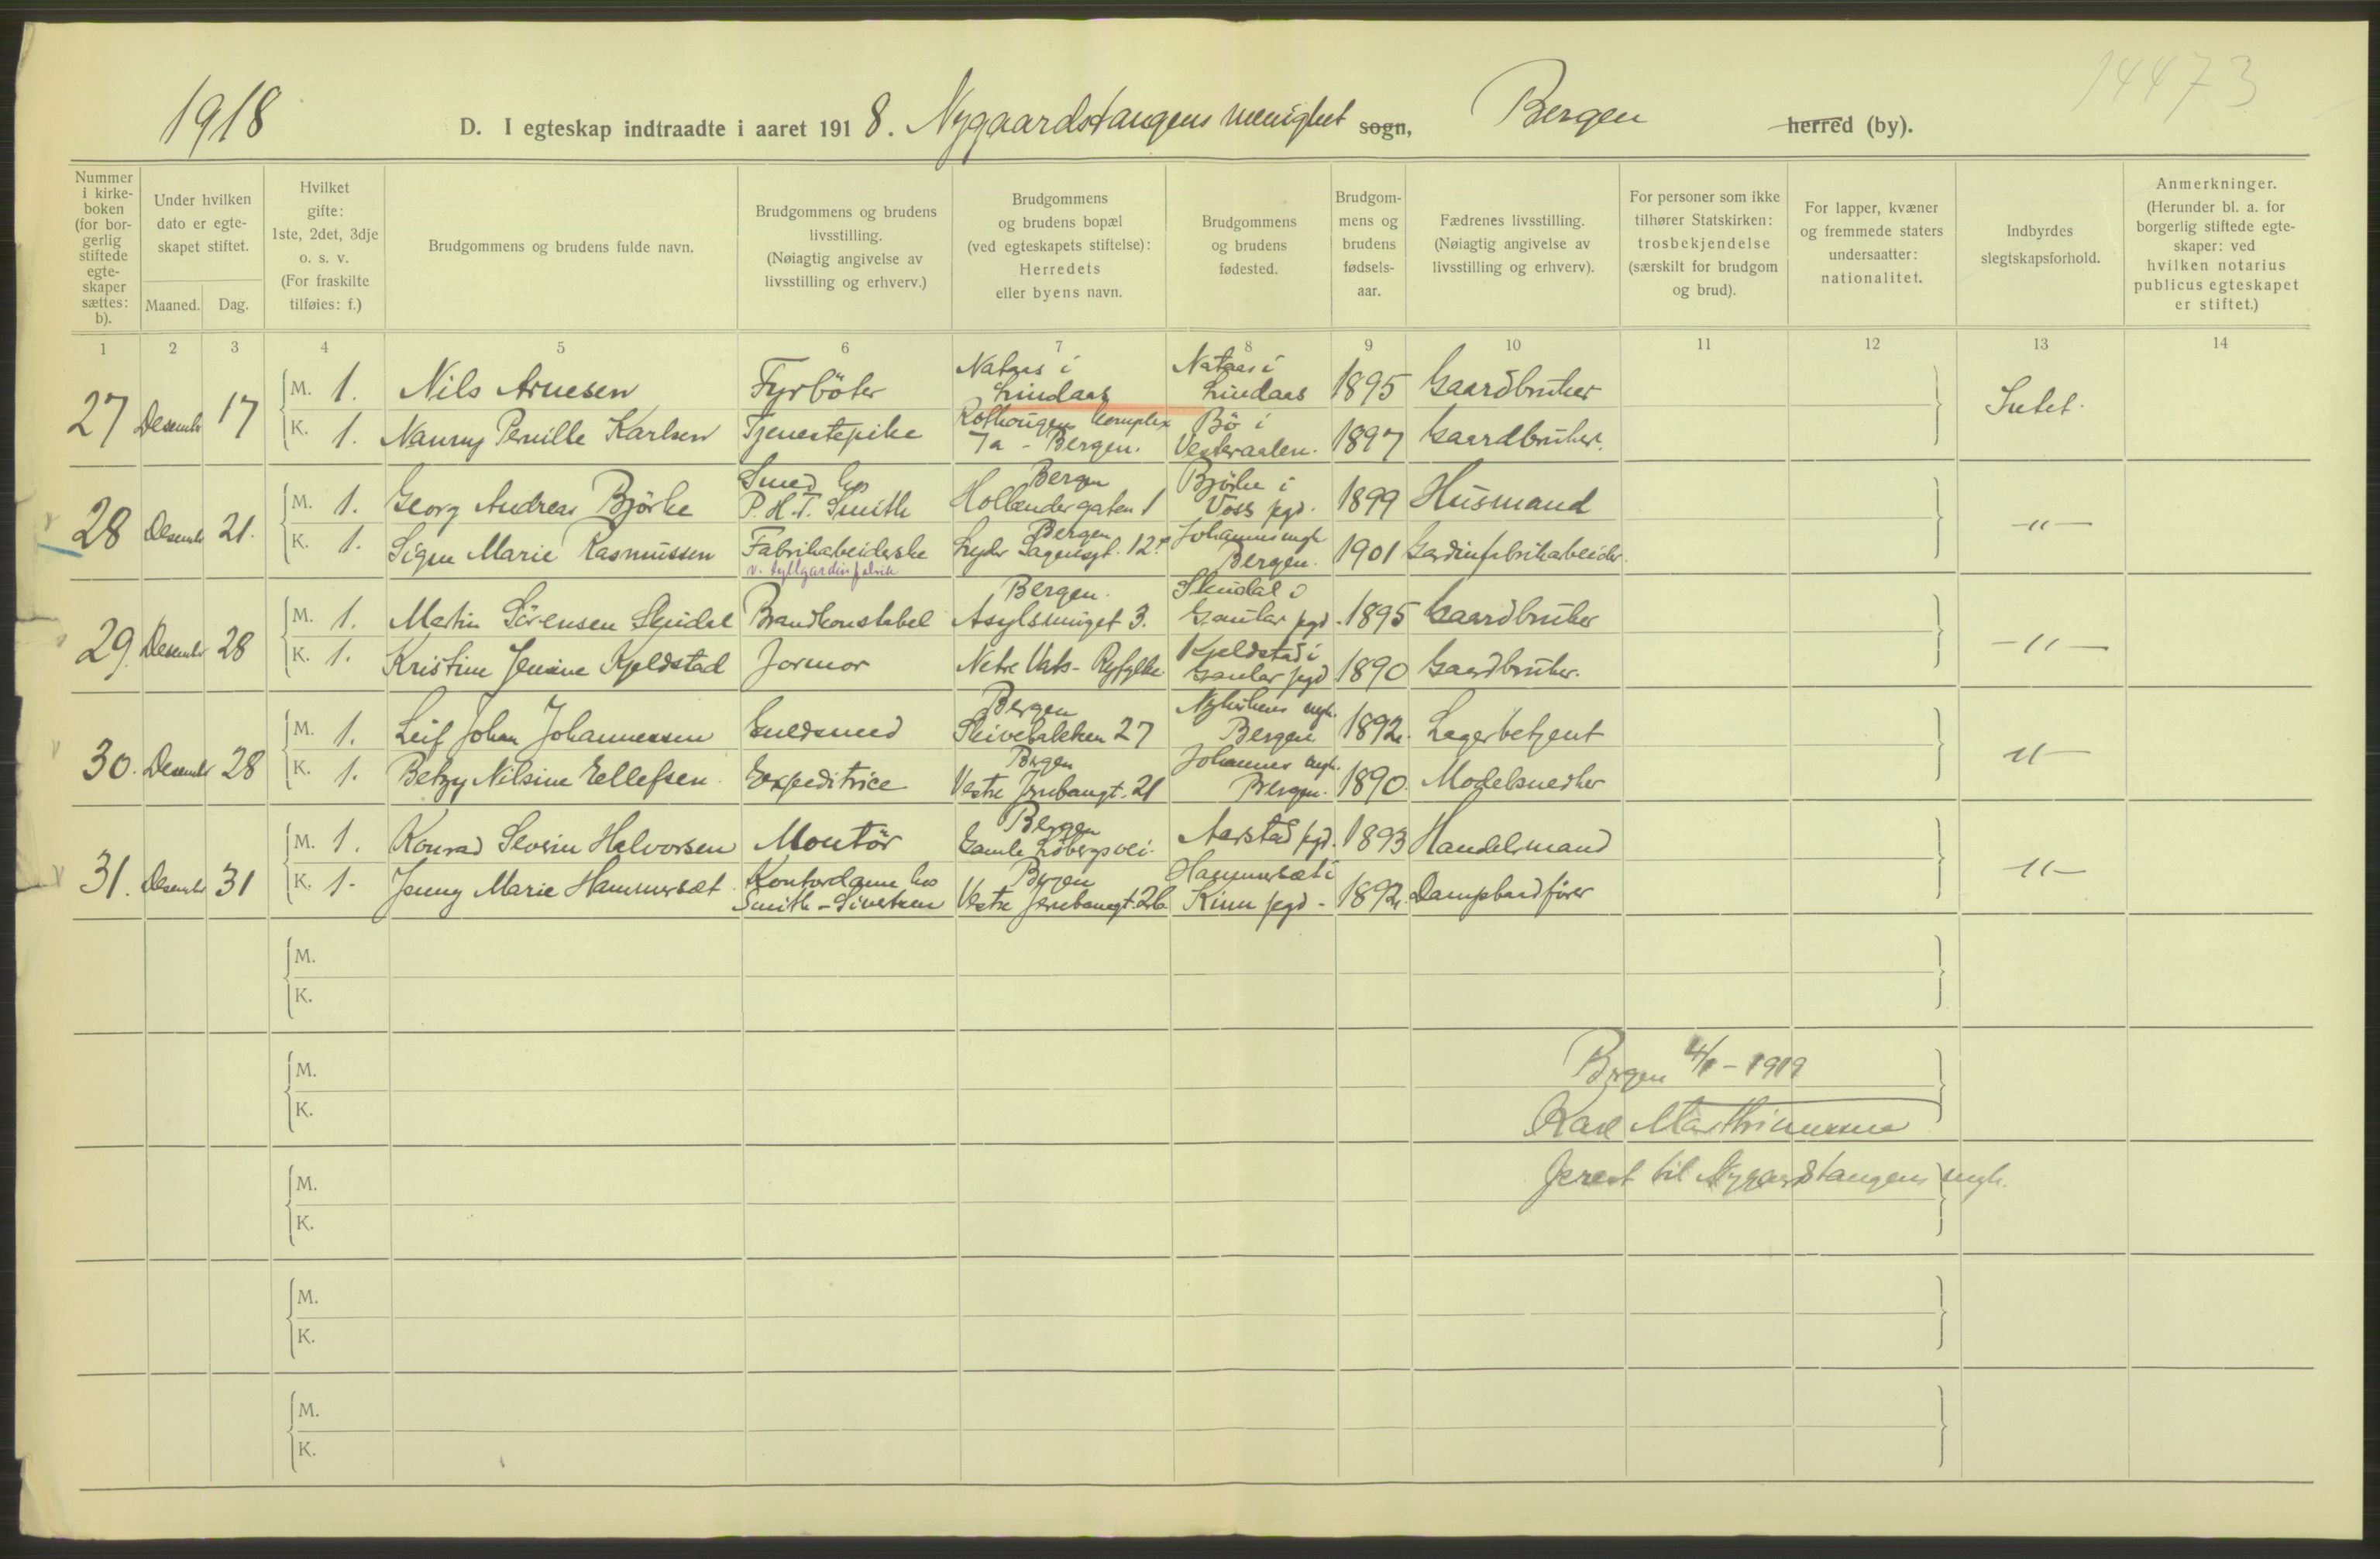 14473
1918
D. I egteskap indtraadte i aaret 1918. Nygaardstangens menighet sogn, Bergen herred (by).
Nummer i kirkeboken (for borgerlig stiftede egteskaper sættes: b).
Under hvilken dato er egteskapet stiftet.
Maaned. Dag.
Hvilket gifte: 1ste, 2det, 3dje o. s. v. (For fraskilte tilføies: f.)
Brudgommens og brudens fulde navn.
Brudgommens og brudens livsstilling. (Nøiagtig angivelse av livsstilling og erhverv.)
Brudgommens og brudens bopæl (ved egteskapets stiftelse): Herredets eller byens navn.
Brudgommens og brudens fødested.
Brudgommens og brudens fødselsaar.
Fædrenes livsstilling. (Nøiagtig angivelse av livsstilling og erhverv).
For personer som ikke tilhører Statskirken: trosbekjendelse (særskilt for brudgom og brud).
For lapper, kvæner og fremmede staters undersaatter: nationalitet.
Indbyrdes slegtskapsforhold.
Anmerkninger. (Herunder bl. a. for borgerlig stiftede egteskaper: ved hvilken notarius publicus egteskapet er stiftet.)
1 2 3 4 5 6 7 8 9 10 11 12 13 14
27 Desembr 17 M. 1. Nils Arnesen Fyrböter Nataas i Lindaas Nataas i Lindaas 1895 Gaardbruker Intet.
K. 1. Nanny Pernille Karlsen Tjenestepike Rothougens komplex 7a - Bergen. Bö i Vesteraalen. 1897 Gaardbruker.
28 Desembr 21. M. 1. Georg Andreas Björke Smed hos P. H. T. Smith Bergen Hollendergaten 1 Björke i Voss pgd. 1899 Husmand -"-
K. 1. Signe Marie Rasmussen Fabrikabeiderske v. tyllgardinfabrik Bergen Lyder Sagensgt. 12 Johannes mgh. Bergen. 1901 Gardinfabrikabeider.
29. Desembr 28 M. 1. Martin Sörensen Skudal Brandkonstabel Bergen. Asylsmuget 3. Skudal i Gaular pgd. 1895 Gaardbruker -"-
K. 1. Kristine Jensine Kjeldstad Jormor Nedre Vats - Ryfylke Kjeldstad i Gaular pgd 1890 Gaardbruker.
30. Desembr 28 M. 1. Leif Johan Johannessen Guldsmed Bergen Skivebakken 27 Nykirkens mgh. Bergen 1892. Lagerbetjent "-
K. 1. Betzy Nilsine Ellefsen Expeditrice Bergen Vestre Jernbanegt. 21 Johannes mgh. Bergen. 1890. Modelsnedker
31. Desembr 31 M. 1. Konrad Severin Halvorsen Montör Bergen Gamle Löbergsvei. Aarstad pgd. 1893 Handelsmand "-
K. 1. Jenny Marie Hammersæt Kontordame hos Smith-Sivertsen Bergen Vestre Jernbanegt. 26 Hammersæt i Kinn pgd. 1892. Dampbaadförer
M.
K.
M.
K.
Bergen 4/1 - 1919
Karl Marthinussen
Prest til Nygaardstangens mgh.
M.
K.
M.
K.
M.
K.